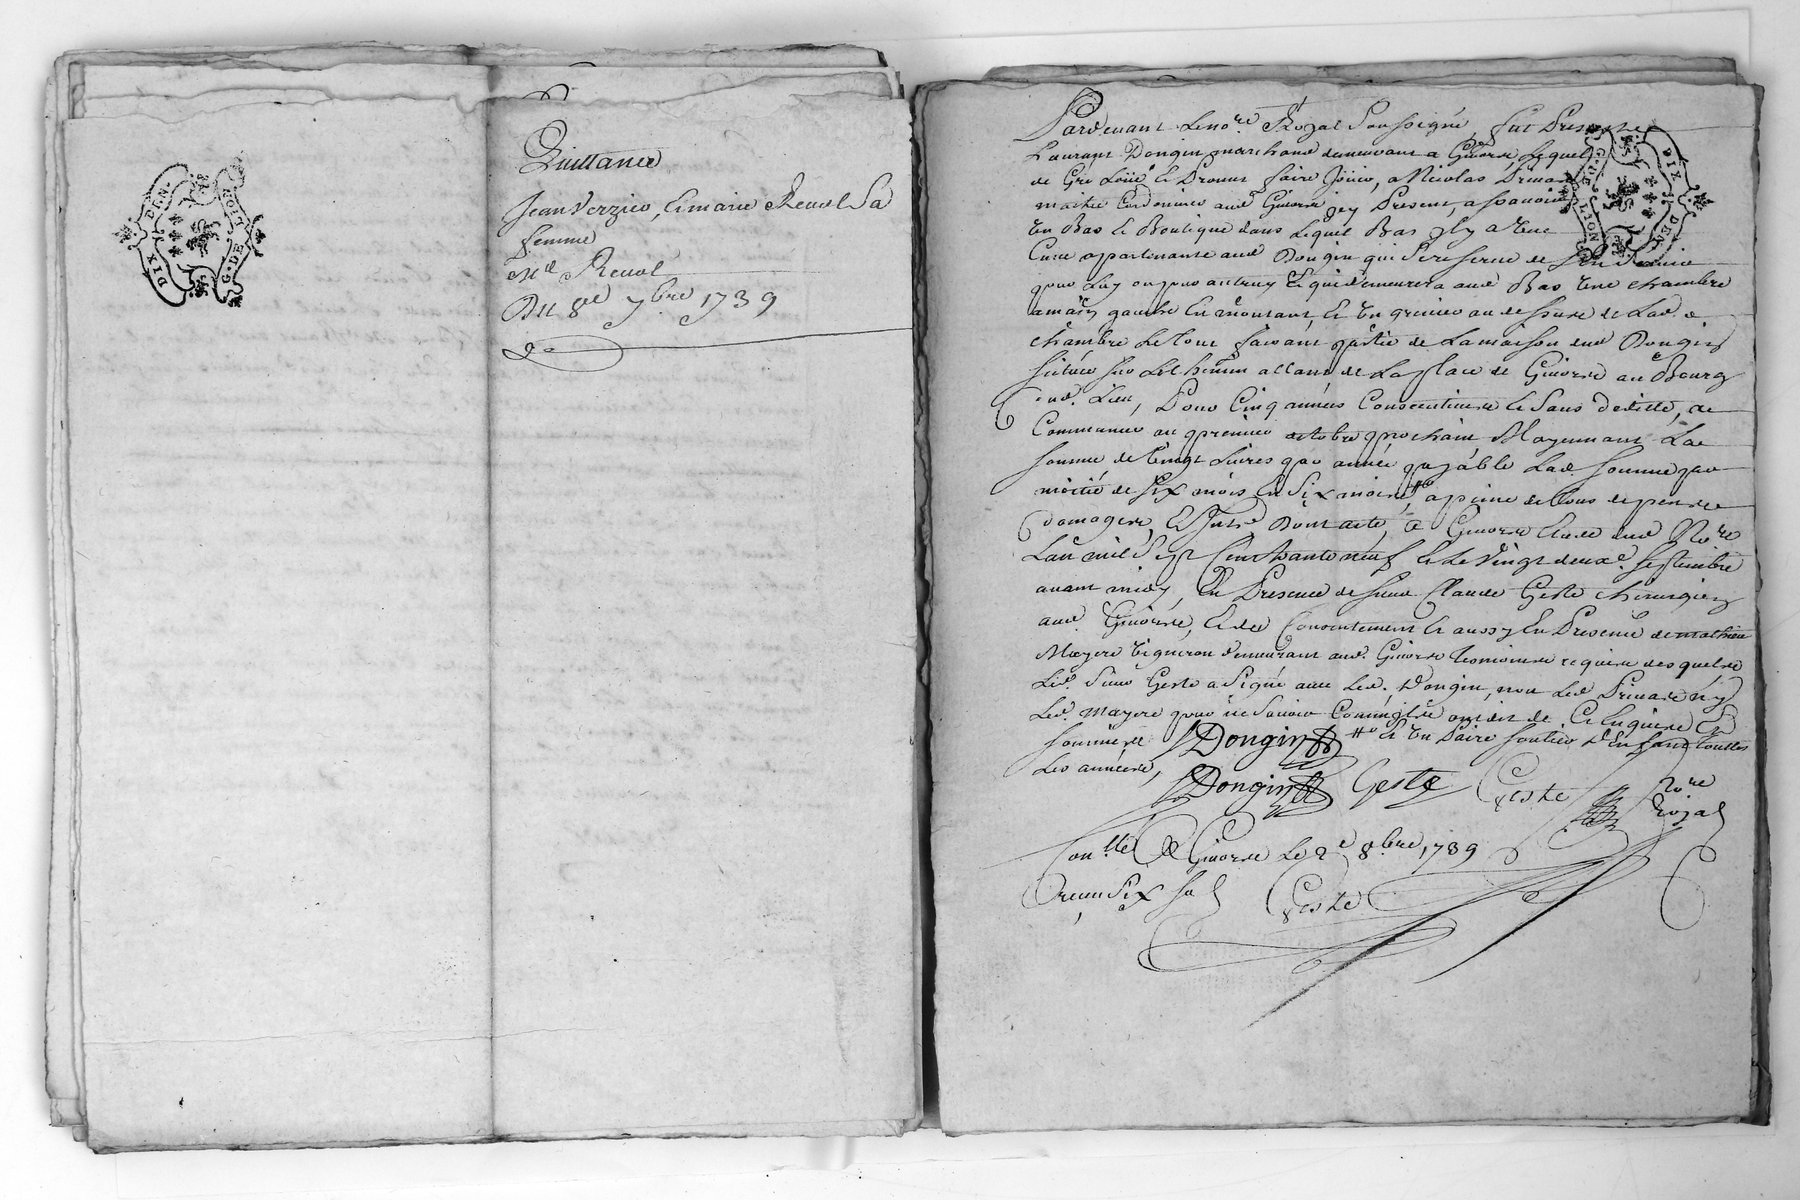 DIX DEN
G. DE NOIT
Quittance
Jean Verzieu, et marie Revol Sa
femme
Me Revol
Du 8e 7bre 1739
Pardevant Le nore Royal Soussigné, fut Present
Laurant Dongin marchand demeurant a Givors Lequel
de Gré Loüe et Promet faire Joüir, a Nicolas Primard
maitre Cordonnier aud Givors jcy Present, a Scavoir
un Bas et Boutique dans Lequel Bas jl y a une
Cuve appartenante aud Dongin qui Se reserve de
pour Luy ou pour autruy Et qui demeurera aud Bas Une chambre
a main gauche En montant, et un grenier au dessus de Lad.
chambre Le tout faisant partie de La maison dud Dongin
Scituée sur Le chemin allant de La place de Givors au Bourg
dud. Lieu, Pour Cinq années Consecutives et Sans deditte, a
Commencer au premier octobre prochain Moyennant La
Somme de Vingt Livres par année payable Lad. Somme par
moitié de Six mois En Six mois, a peine de tous depens
domages, et Interets Dont acte, a Givors Etude dud Nore
Lan mil Sept Cent trente neuf et Le Vingt deuxe. Septembre
avant midy, En Presence de Sieur Claude Geste chirurgien
aud Givors, et de Consentement et aussy En Presence de mathieu
Mayere Vigneron demeurant aud. Givors temoins requis desquels
Led. Sieur Geste a Signé avec Led. Dongin, non Led Primard ny
Led. Mayere pour ne Scavoir Comme jls ont dit de Ce Enquis Et
Sommés Dongin et un Paire Soulier d'Enfant toutes
Les années,
Dongin Geste Geste Nore
Royal
Conllé A Givors Le 2e 8bre 1739
Recu Six Sol Geste
DIX DEN
G. DE NOIT